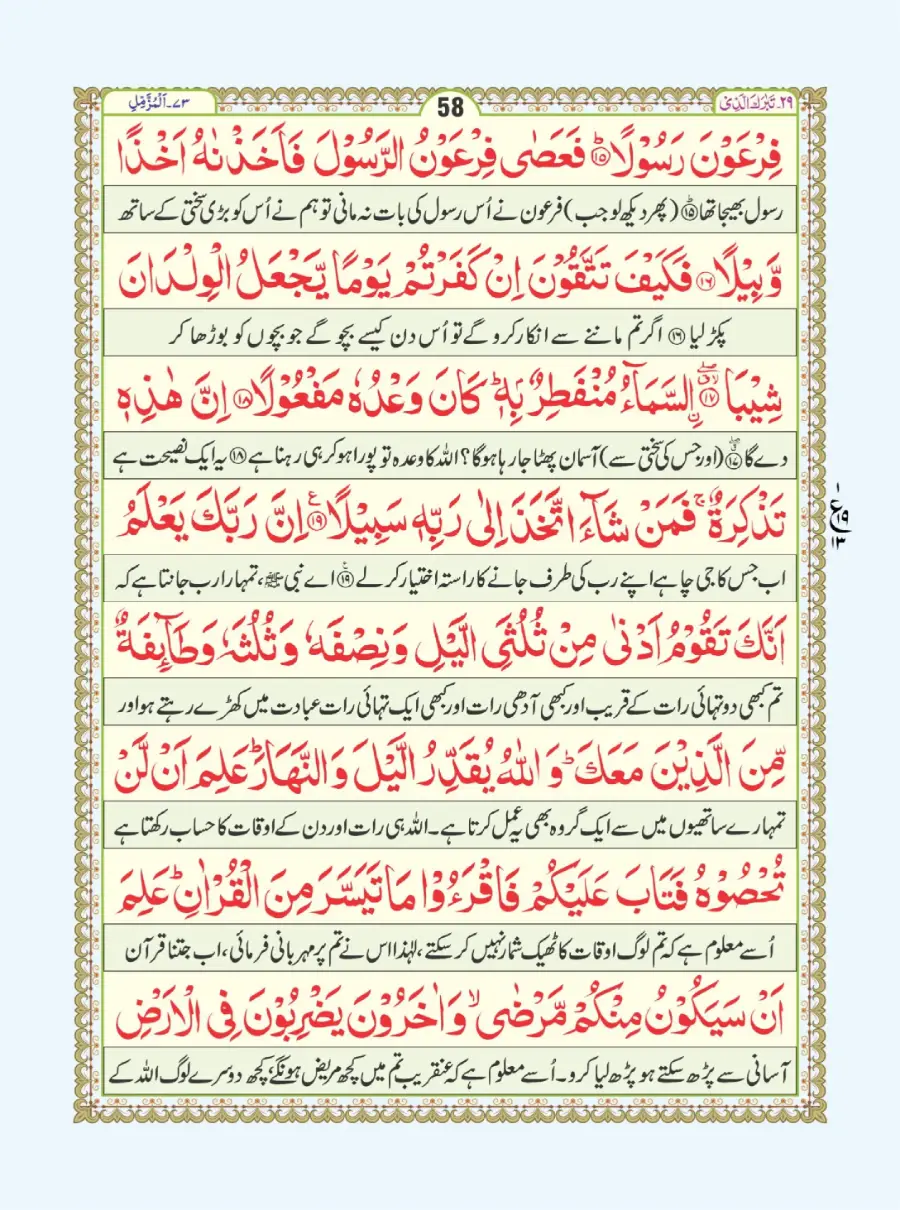 ۲۹۔ تَبٰرَكَ الَّذِیْ
58
۷۳۔ اَلْمُزَّمِّلِ
فِرْعَوْنَ رَسُوْلًا ؕ۝۱۵ فَعَصٰى فِرْعَوْنُ الرَّسُوْلَ فَاَخَذْنٰهُ اَخْذًا
رسول بھیجا تھا ۝۱۵ (پھر دیکھ لو جب) فرعون نے اُس رسول کی بات نہ مانی تو ہم نے اُس کو بڑی سختی کے ساتھ
وَّبِیْلًا ۝۱۶ فَكَیْفَ تَتَّقُوْنَ اِنْ كَفَرْتُمْ یَوْمًا یَّجْعَلُ الْوِلْدَانَ
پکڑ لیا ۝۱۶ اگر تم ماننے سے انکار کرو گے تو اُس دن کیسے بچو گے جو بچوں کو بوڑھا کر
شِیْبَا ۝۱۷ اِ۟لسَّمَآءُ مُنْفَطِرٌۢ بِهٖ ؕ كَانَ وَعْدُهٗ مَفْعُوْلًا ۝۱۸ اِنَّ هٰذِهٖ
دے گا ۝۱۷ (اور جس کی سختی سے) آسمان پھٹا جا رہا ہوگا؟ اللہ کا وعدہ تو پورا ہو کر ہی رہنا ہے ۝۱۸ یہ ایک نصیحت ہے
تَذْكِرَةٌ ۚ فَمَنْ شَآءَ اتَّخَذَ اِلٰى رَبِّهٖ سَبِیْلًا ۝۱۹ اِنَّ رَبَّكَ یَعْلَمُ
ع
۱۹
۱۳
اب جس کا جی چاہے اپنے رب کی طرف جانے کا راستہ اختیار کر لے ۝۱۹ اے نبی ﷺ، تمہارا رب جانتا ہے کہ
اَنَّكَ تَقُوْمُ اَدْنٰى مِنْ ثُلُثَیِ الَّیْلِ وَنِصْفَهٗ وَثُلُثَهٗ وَطَآىِٕفَةٌ
تم کبھی دو تہائی رات کے قریب اور کبھی آدھی رات اور کبھی ایک تہائی رات عبادت میں کھڑے رہتے ہو اور
مِّنَ الَّذِیْنَ مَعَكَ ؕ وَاللّٰهُ یُقَدِّرُ الَّیْلَ وَالنَّهَارَ ؕ عَلِمَ اَنْ لَّنْ
تمہارے ساتھیوں میں سے ایک گروہ بھی یہ عمل کرتا ہے۔ اللہ ہی رات اور دن کے اوقات کا حساب رکھتا ہے
تُحْصُوْهُ فَتَابَ عَلَیْكُمْ فَاقْرَءُوْا مَا تَیَسَّرَ مِنَ الْقُرْاٰنِ ؕ عَلِمَ
اُسے معلوم ہے کہ تم لوگ اوقات کا ٹھیک شمار نہیں کر سکتے، لہٰذا اس نے تم پر مہربانی فرمائی، اب جتنا قرآن
اَنْ سَیَكُوْنُ مِنْكُمْ مَّرْضٰى ۙ وَاٰخَرُوْنَ یَضْرِبُوْنَ فِی الْاَرْضِ
آسانی سے پڑھ سکتے ہو پڑھ لیا کرو۔ اُسے معلوم ہے کہ عنقریب تم میں کچھ مریض ہونگے، کچھ دوسرے لوگ اللہ کے